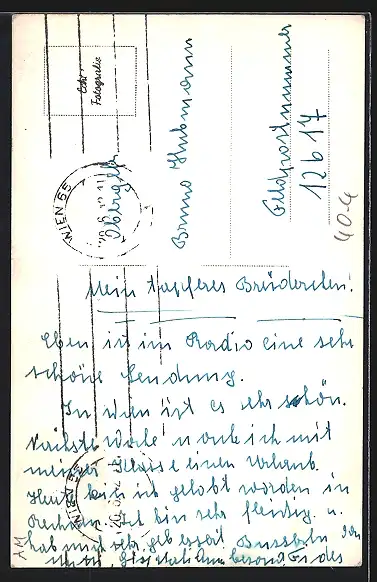 Echt
Fotografie
WIEN 55
Obergefr
Bruno Hubmann
Feldpostnummer
12617
40.-4
Mein tapferes Brüderchen!
Eben ist im Radio eine sehr
schöne Sendung.
In Wien ist es sehr schön.
Nächste Woche mache ich mit
meiner Klasse einen Urlaub.
Heute bin ich gelobt worden in
Rechnen. Ich bin sehr fleißig. u.
hab mich sehr gebessert Bussebein
WIEN 55
AM